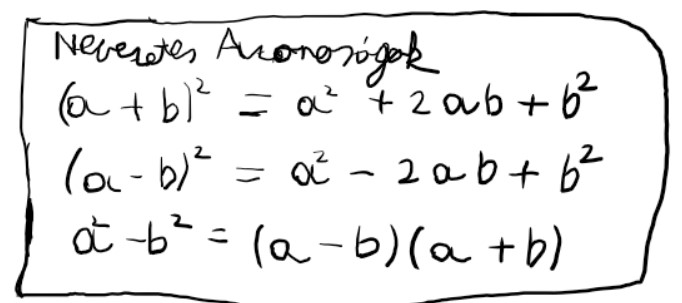 Nevezetes Azonosságok
(a + b)² = a² + 2ab + b²
(a - b)² = a² - 2ab + b²
a² - b² = (a - b)(a + b)